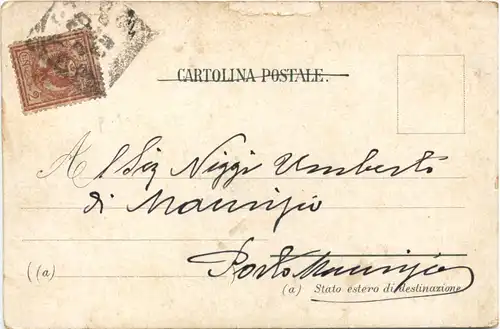 CARTOLINA POSTALE.
Al Sig Niggi Umberto
di Maurizio
Porto Maurizio
(a)
(a) Stato estero di destinazione